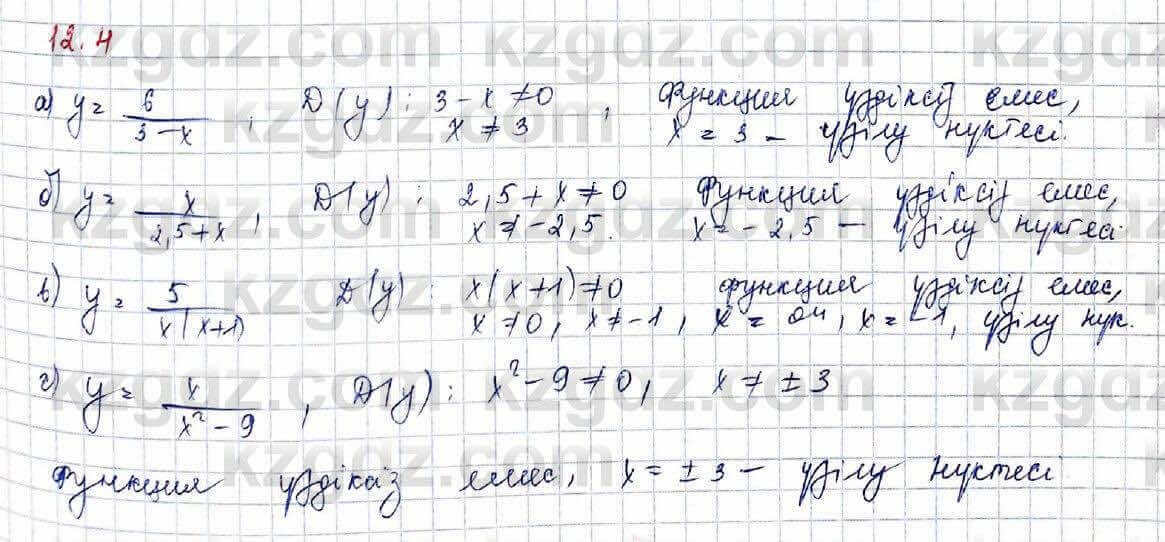 12.4
а) y = 6/(3-x), D(y): 3-x≠0, Функция үздіксіз емес,
x≠3 x = 3 - үзілу нүктесі.
б) y = x/(2,5+x), D(y): 2,5+x≠0 Функция үздіксіз емес,
x≠-2,5. x=-2,5 - үзілу нүктесі
в) y = 5/(x(x+1)) D(y): x(x+1)≠0 функция үздіксіз емес,
x≠0, x≠-1, x = 0 x = -1, үзілу нүк.
г) y = x/(x²-9), D(y): x²-9≠0, x≠±3
Функция үздіксіз емес, x=±3 - үзілу нүктесі
kzgdz.com